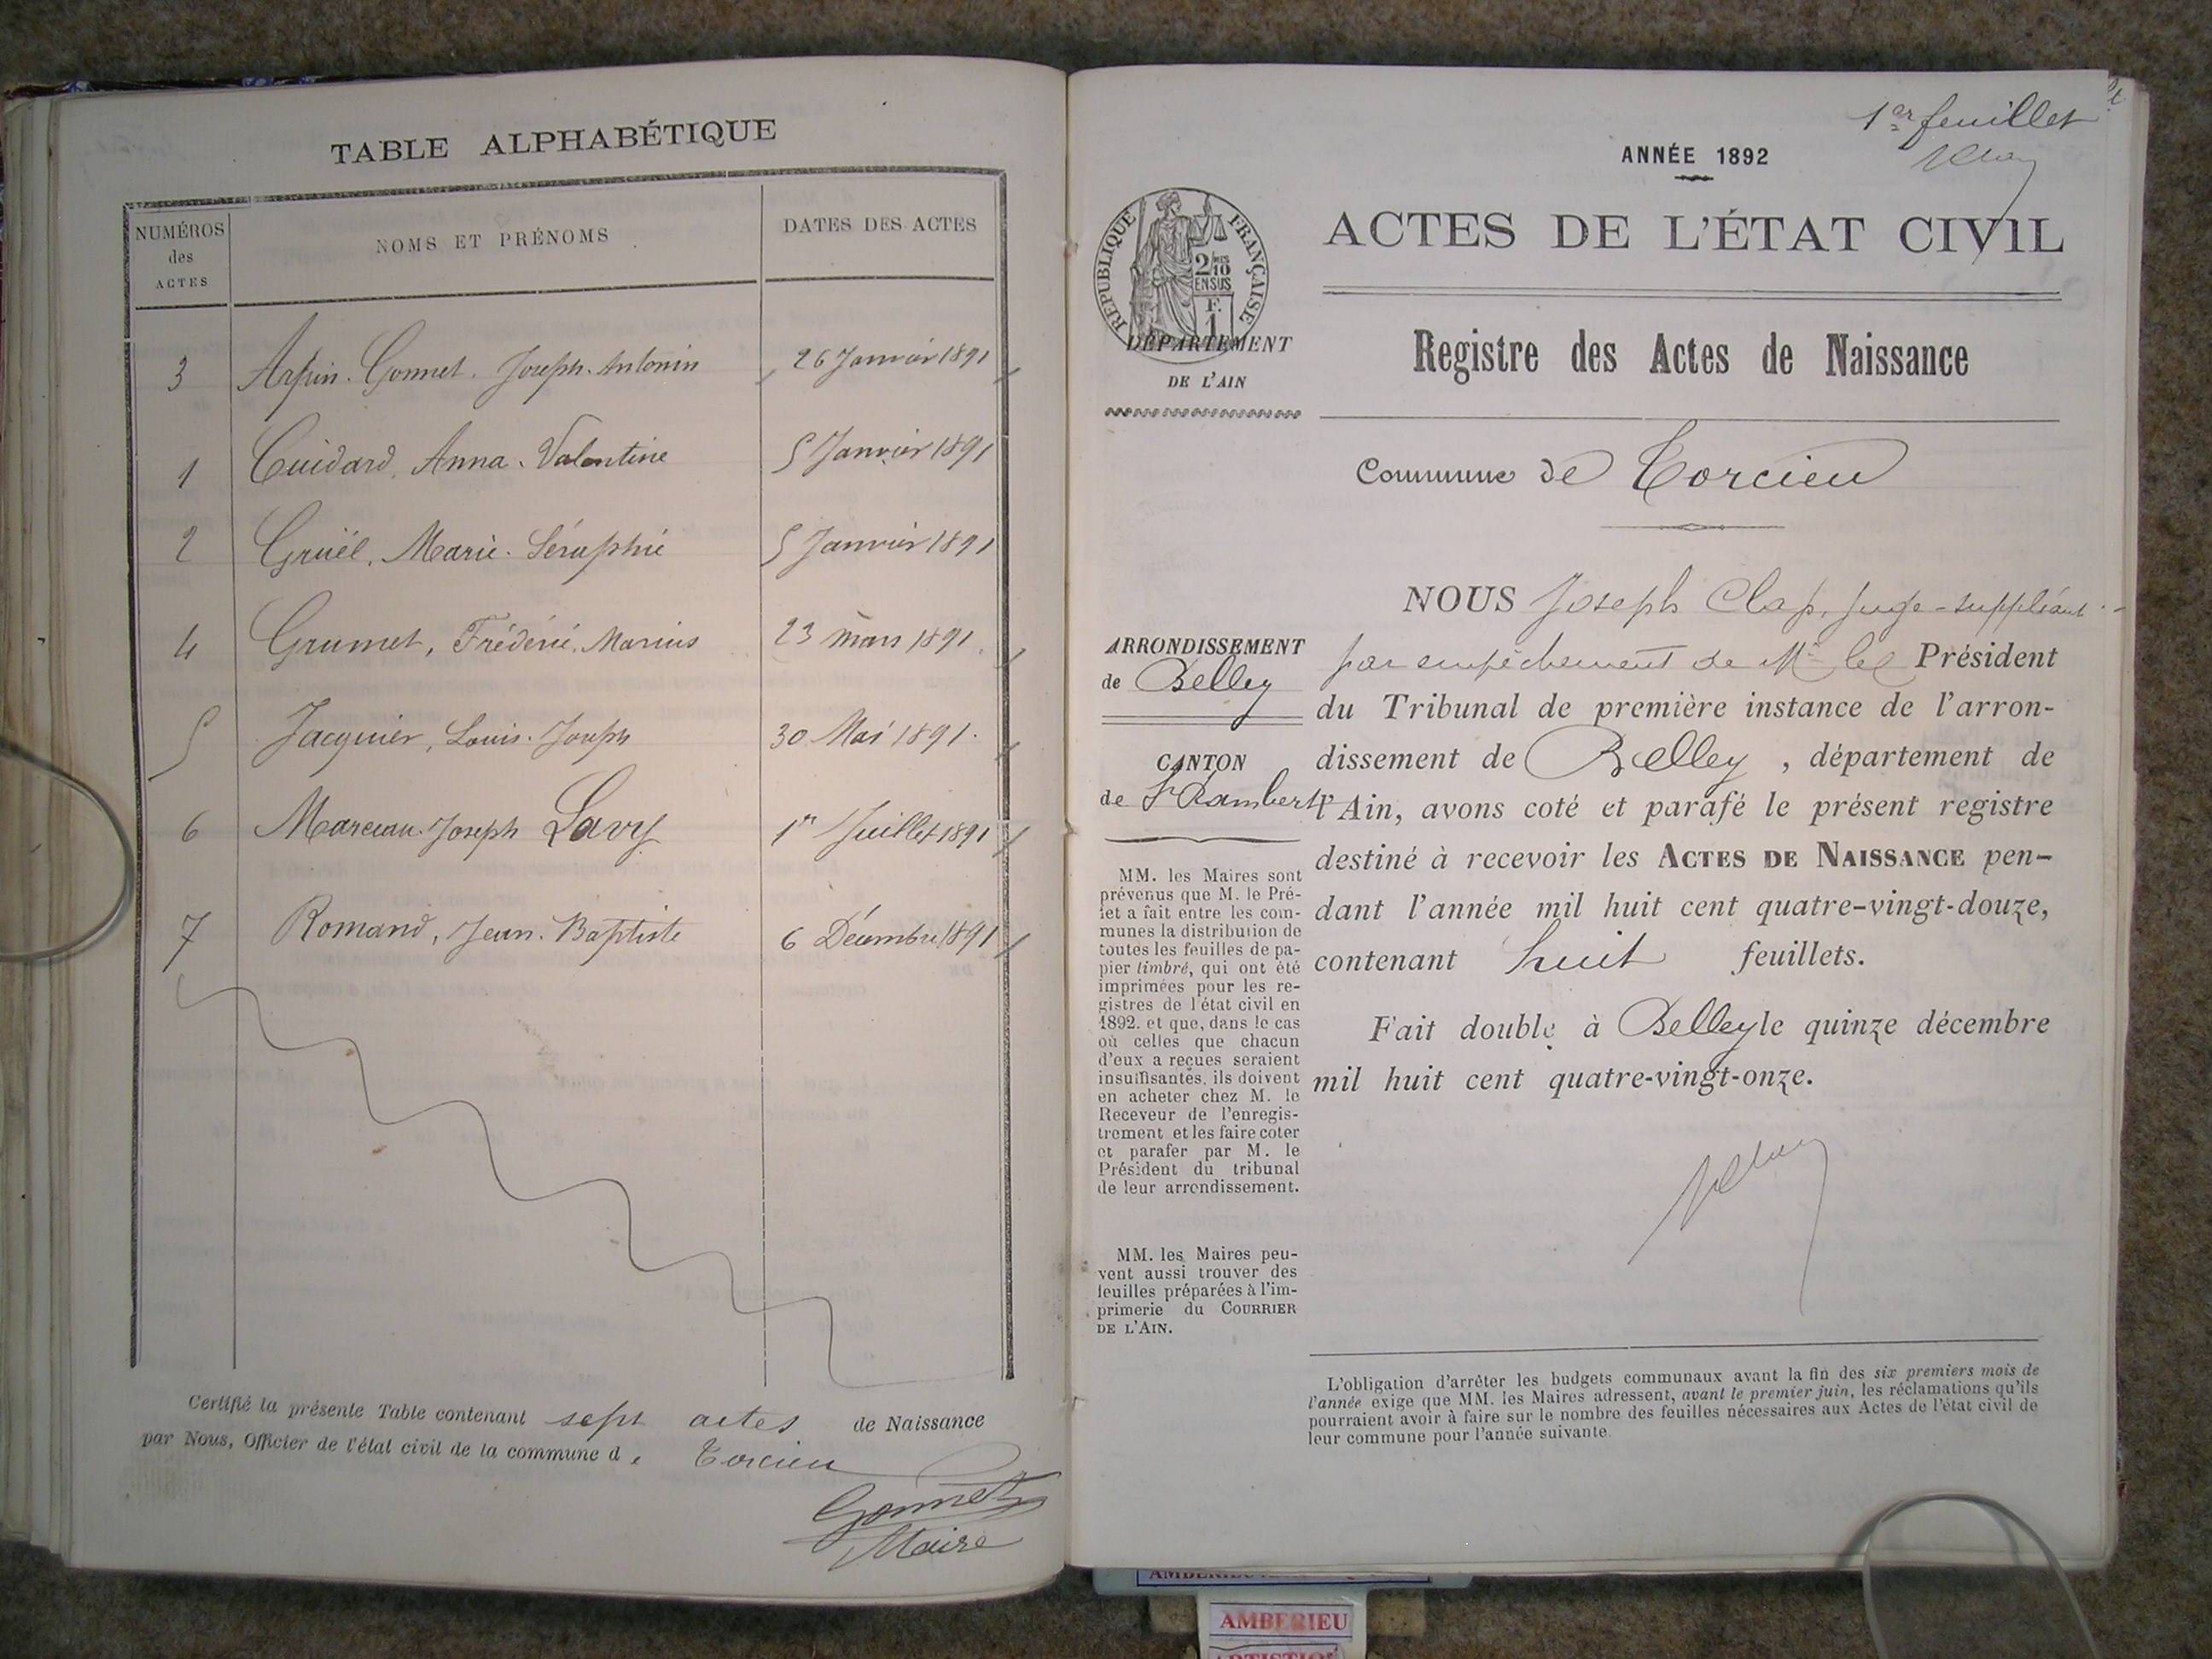 TABLE ALPHABÉTIQUE
NUMÉROS des ACTES
NOMS ET PRÉNOMS
DATES DES ACTES
3 Arpin. Gonnet. Joseph. Antonin 26 Janvier 1891
1 Cuidard, Anna. Valentine 5 Janvier 1891
2 Gruël, Marie. Séraphie 5 Janvier 1891
4 Grumet, Frédéric. Marius 23 mars 1891
5 Jacquier, Louis. Joseph 30 Mai 1891.
6 Joseph Lavy 1er Juillet 1891
7 Romand, Jean. Baptiste 6 Décembre 1891
Certifié la présente Table contenant sept actes de Naissance
par Nous, Officier de l'état civil de la commune de Torcieu
Gonnet
Maire
1er feuillet
ANNÉE 1892
RÉPUBLIQUE FRANÇAISE
2/10
EN SUS
F.
1
ACTES DE L'ÉTAT CIVIL
DÉPARTEMENT
DE L'AIN
Registre des Actes de Naissance
Commune de Torcieu
ARRONDISSEMENT
de Belley
CANTON
de St Rambert
MM. les Maires sont
prévenus que M. le Pré-
fet a fait entre les com-
munes la distribution de
toutes les feuilles de pa-
pier timbré, qui ont été
imprimées pour les re-
gistres de l'état civil en
1892. et que, dans le cas
où celles que chacun
d'eux a reçues seraient
insuffisantes, ils doivent
en acheter chez M. le
Receveur de l'enregis-
trement et les faire coter
et parafer par M. le
Président du tribunal
de leur arrondissement.
MM. les Maires peu-
vent aussi trouver des
feuilles préparées à l'im-
primerie du COURRIER
DE L'AIN.
NOUS Joseph Clap, juge-suppléant
par empêchement de Mr le Président
du Tribunal de première instance de l'arron-
dissement de Belley, département de
l'Ain, avons coté et parafé le présent registre
destiné à recevoir les ACTES DE NAISSANCE pen-
dant l'année mil huit cent quatre-vingt-douze,
contenant huit feuillets.
Fait double à Belley le quinze décembre
mil huit cent quatre-vingt-onze.
L'obligation d'arrêter les budgets communaux avant la fin des six premiers mois de
l'année exige que MM. les Maires adressent, avant le premier juin, les réclamations qu'ils
pourraient avoir à faire sur le nombre des feuilles nécessaires aux Actes de l'état civil de
leur commune pour l'année suivante.
AMBERIEU